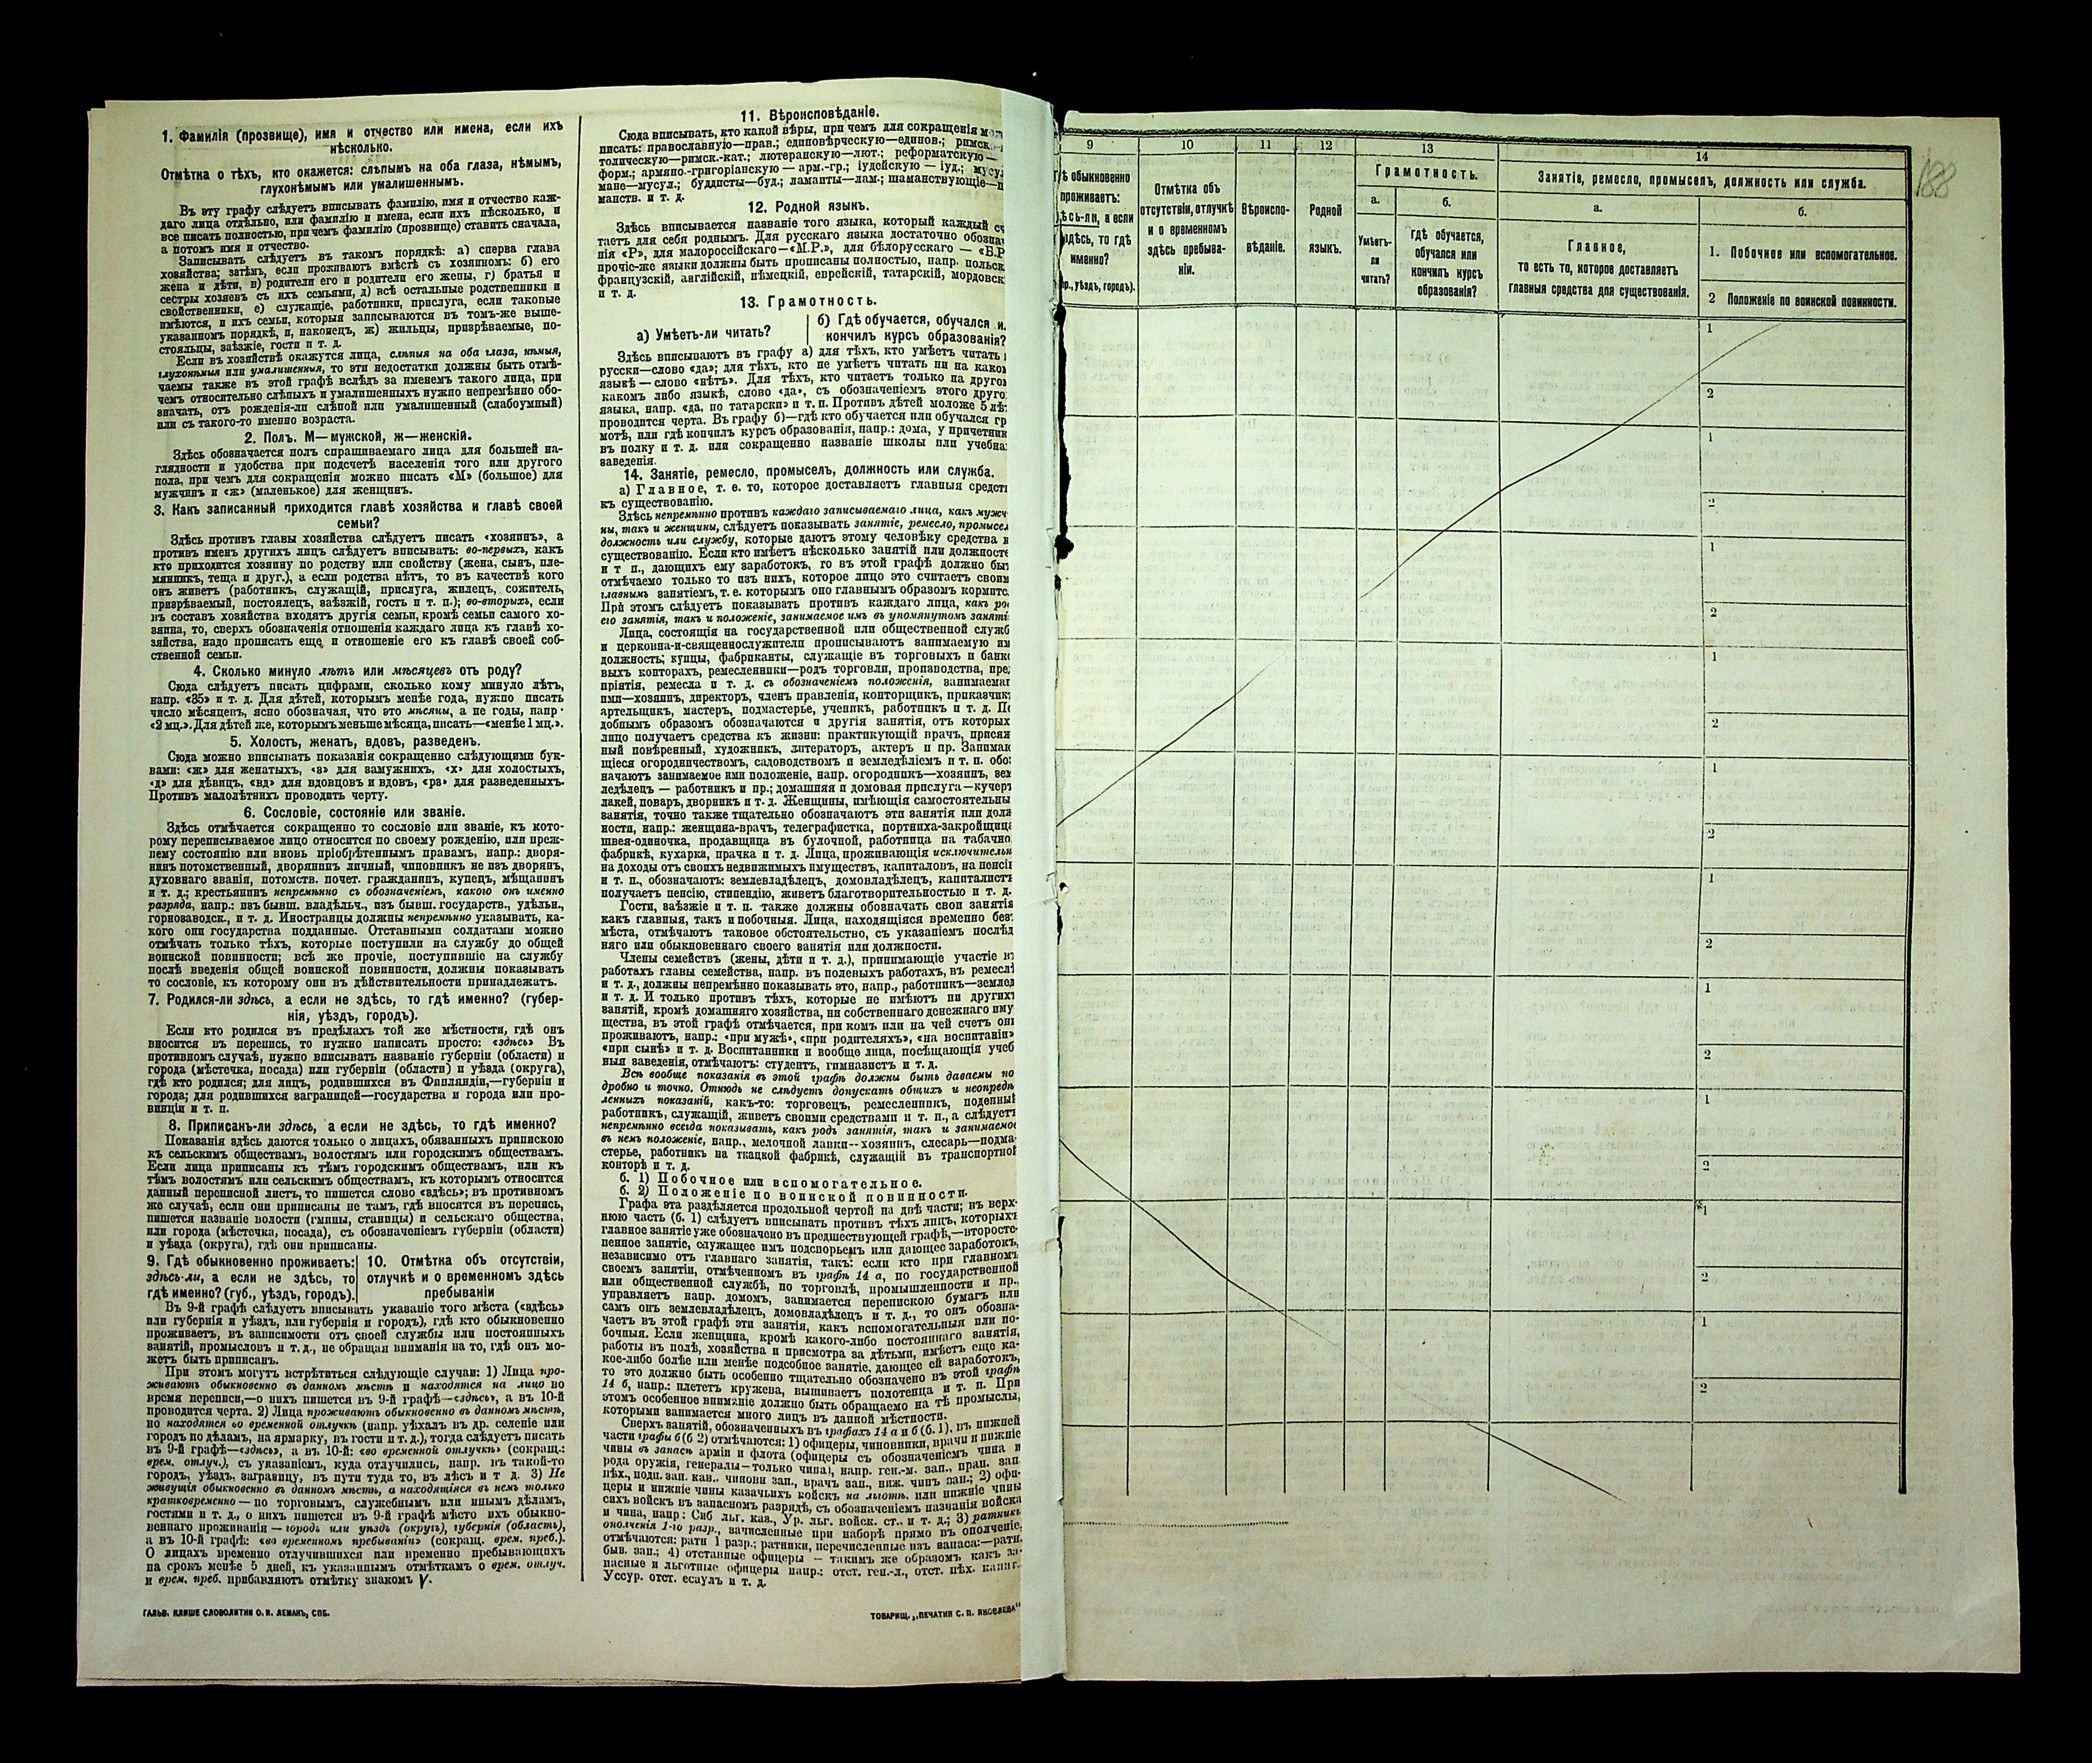 1. Фамилія (прозвище), имя и отчество или имена, если ихъ
нѣсколько.
Отмѣтка о тѣхъ, кто окажется: слѣпымъ на оба глаза, нѣмымъ,
глухонѣмымъ или умалишеннымъ.
Въ эту графу слѣдуетъ вписывать фамилію, имя и отчество каж-
даго лица отдѣльно, или фамилію и имена, если ихъ нѣсколько, и
все писать полностью, при чемъ фамилію (прозвище) ставить сначала,
а потомъ имя и отчество.
Записывать слѣдуетъ въ такомъ порядкѣ: а) сперва глава
хозяйства; затѣмъ, если проживаютъ вмѣстѣ съ хозяиномъ: б) его
жена и дѣти, в) родители его и родители его жены, г) братья и
сестры хозяевъ съ ихъ семьями, д) всѣ остальные родственники и
свойственники, е) служащіе, работники, прислуга, если таковые
имѣются, и ихъ семьи, которыя записываются въ томъ-же выше-
указанномъ порядкѣ, и, наконецъ, ж) жильцы, призрѣваемые, по-
стояльцы, заѣзжіе, гости и т. д.
Если въ хозяйствѣ окажутся лица, слѣпыя на оба глаза, нѣмыя,
глухонѣмыя или умалишенныя, то эти недостатки должны быть отмѣ-
чаемы также въ этой графѣ вслѣдъ за именемъ такого лица, при
чемъ относительно слѣпыхъ и умалишенныхъ нужно непремѣнно обо-
значать, отъ рожденія-ли слѣпой или умалишенный (слабоумный)
или съ такого-то именно возраста.
2. Полъ. М—мужской, ж—женскій.
Здѣсь обозначается полъ спрашиваемаго лица для большей на-
глядности и удобства при подсчетѣ населенія того или другого
пола, при чемъ для сокращенія можно писать «М» (большое) для
мужчинъ и «ж» (маленькое) для женщинъ.
3. Какъ записанный приходится главѣ хозяйства и главѣ своей
семьи?
Здѣсь противъ главы хозяйства слѣдуетъ писать «хозяинъ», а
противъ именъ другихъ лицъ слѣдуетъ вписывать: во-первыхъ, какъ
кто приходится хозяину по родству или свойству (жена, сынъ, пле-
мянникъ, теща и друг.), а если родства нѣтъ, то въ качествѣ кого
онъ живетъ (работникъ, служащій, прислуга, жилецъ, сожитель,
призрѣваемый, постоялецъ, заѣзжій, гость и т. п.); во-вторыхъ, если
въ составъ хозяйства входятъ другія семьи, кромѣ семьи самого хо-
зяина, то, сверхъ обозначенія отношенія каждаго лица къ главѣ хо-
зяйства, надо прописать еще и отношеніе его къ главѣ своей соб-
ственной семьи.
4. Сколько минуло лѣтъ или мѣсяцевъ отъ роду?
Сюда слѣдуетъ писать цифрами, сколько кому минуло лѣтъ,
напр. «35» и т. д. Для дѣтей, которымъ менѣе года, нужно писать
число мѣсяцевъ, ясно обозначая, что это мѣсяцы, а не годы, напр.
«2 мц.». Для дѣтей же, которымъ меньше мѣсяца, писать—«менѣе 1 мц.».
5. Холостъ, женатъ, вдовъ, разведенъ.
Сюда можно вписывать показанія сокращенно слѣдующими бук-
вами: «ж» для женатыхъ, «з» для замужнихъ, «х» для холостыхъ,
«д» для дѣвицъ, «вд» для вдовцовъ и вдовъ, «рз» для разведенныхъ.
Противъ малолѣтнихъ проводить черту.
6. Сословіе, состояніе или званіе.
Здѣсь отмѣчается сокращенно то сословіе или званіе, къ кото-
рому переписываемое лицо относится по своему рожденію, или преж-
нему состоянію или вновь пріобрѣтеннымъ правамъ, напр.: дворя-
нинъ потомственный, дворянинъ личный, чиновникъ не изъ дворянъ,
духовнаго званія, потомств. почет. гражданинъ, купецъ, мѣщанинъ
и т. д.; крестьянинъ непремѣнно съ обозначеніемъ, какого онъ именно
разряда, напр.: изъ бывш. владѣльч., изъ бывш. государств., удѣльн.,
горнозаводск., и т. д. Иностранцы должны непремѣнно указывать, ка-
кого они государства подданные. Отставными солдатами можно
отмѣчать только тѣхъ, которые поступили на службу до общей
воинской повинности; всѣ же прочіе, поступившіе на службу
послѣ введенія общей воинской повинности, должны показывать
то сословіе, къ которому они въ дѣйствительности принадлежатъ.
7. Родился-ли здѣсь, а если не здѣсь, то гдѣ именно? (губер-
нія, уѣздъ, городъ).
Если кто родился въ предѣлахъ той же мѣстности, гдѣ онъ
вносится въ перепись, то нужно написать просто: «здѣсь» Въ
противномъ случаѣ, нужно вписывать названіе губерніи (области) и
города (мѣстечка, посада) или губерніи (области) и уѣзда (округа),
гдѣ кто родился; для лицъ, родившихся въ Финляндіи,—губерніи и
города; для родившихся заграницей—государства и города или про-
винціи и т. п.
8. Приписанъ-ли здѣсь, а если не здѣсь, то гдѣ именно?
Показанія здѣсь даются только о лицахъ, обязанныхъ припискою
къ сельскимъ обществамъ, волостямъ или городскимъ обществамъ.
Если лица приписаны къ тѣмъ городскимъ обществамъ, или къ
тѣмъ волостямъ или сельскимъ обществамъ, къ которымъ относится
данный переписной листъ, то пишется слово «здѣсь»; въ противномъ
же случаѣ, если они приписаны не тамъ, гдѣ вносятся въ перепись,
пишется названіе волости (гмины, станицы) и сельскаго общества,
или города (мѣстечка, посада), съ обозначеніемъ губерніи (области)
и уѣзда (округа), гдѣ они приписаны.
9. Гдѣ обыкновенно проживаетъ:
здѣсь-ли, а если не здѣсь, то
гдѣ именно? (губ., уѣздъ, городъ).
10. Отмѣтка объ отсутствіи,
отлучкѣ и о временномъ здѣсь
пребываніи
Въ 9-й графѣ слѣдуетъ вписывать указаніе того мѣста («здѣсь»
или губернія и уѣздъ, или губернія и городъ), гдѣ кто обыкновенно
проживаетъ, въ зависимости отъ своей службы или постоянныхъ
занятій, промысловъ и т. д., не обращая вниманія на то, гдѣ онъ мо-
жетъ быть приписанъ.
При этомъ могутъ встрѣтиться слѣдующіе случаи: 1) Лица про-
живаютъ обыкновенно въ данномъ мѣстѣ и находятся на лицо во
время переписи,—о нихъ пишется въ 9-й графѣ—«здѣсь», а въ 10-й
проводится черта. 2) Лица проживаютъ обыкновенно въ данномъ мѣстѣ,
но находятся во временной отлучкѣ (напр. уѣхалъ въ др. селеніе или
городъ по дѣламъ, на ярмарку, въ гости и т. д.), тогда слѣдуетъ писать
въ 9-й графѣ—«здѣсь», а въ 10-й: «во временной отлучкѣ» (сокращ.:
врем. отлуч.), съ указаніемъ, куда отлучились, напр. въ такой-то
городъ, уѣздъ, заграницу, въ пути туда то, въ лѣсъ и т д. 3) Не
живущія обыкновенно въ данномъ мѣстѣ, а находящіяся въ немъ только
кратковременно — по торговымъ, служебнымъ или инымъ дѣламъ,
гостями и т. д., о нихъ пишется въ 9-й графѣ мѣсто ихъ обыкно-
веннаго проживанія — городъ или уѣздъ (округъ), губернія (область),
а въ 10-й графѣ: «во временномъ пребываніи» (сокращ. врем. преб.).
О лицахъ временно отлучившихся или временно пребывающихъ
на срокъ менѣе 5 дней, къ указаннымъ отмѣткамъ о врем. отлуч.
и врем. преб. прибавляютъ отмѣтку знакомъ V.
ГАЛЬВ. КЛИШЕ СЛОВОЛИТНИ О. И. ЛЕМАНЪ, СПБ.
11. Вѣроисповѣданіе.
Сюда вписывать, кто какой вѣры, при чемъ для сокращенія
писать: православную—прав.; единовѣрческую—единов.; римск.
толическую—римск.-кат.; лютеранскую—лют.; реформатскую —
форм.; армяно.-григоріанскую — арм.-гр.; іудейскую — іуд.; мусул
мане—мусул.; буддисты—буд.; ламаиты—лам.; шаманствующіе—
манств. и т. д.
12. Родной языкъ.
Здѣсь вписывается названіе того языка, который каждый сч
таетъ для себя роднымъ. Для русскаго языка достаточно обозна
нія «Р», для малороссійскаго—«М.Р.», для бѣлорусскаго — «Б.Р
прочіе-же языки должны быть прописаны полностью, напр. польск
французскій, англійскій, нѣмецкій, еврейскій, татарскій, мордовск
и т. д.
13. Грамотность.
а) Умѣетъ-ли читать?
б) Гдѣ обучается, обучался и
кончилъ курсъ образованія?
Здѣсь вписываютъ въ графу а) для тѣхъ, кто умѣетъ читать
русски—слово «да»; для тѣхъ, кто не умѣетъ читать ни на како
языкѣ — слово «нѣтъ». Для тѣхъ, кто читаетъ только на друго
какомъ либо языкѣ, слово «да», съ обозначеніемъ этого друго
языка, напр. «да, по татарски» и т. п. Противъ дѣтей моложе 5 лѣ
проводится черта. Въ графу б)—гдѣ кто обучается или обучался гр
мотѣ, или гдѣ кончилъ курсъ образованія, напр.: дома, у причетник
въ полку и т. д. или сокращенно названіе школы или учебна
заведенія.
14. Занятіе, ремесло, промыселъ, должность или служба.
а) Главное, т. е. то, которое доставляетъ главныя средст
къ существованію.
Здѣсь непремѣнно противъ каждаго записываемаго лица, какъ мужч
ны, такъ и женщины, слѣдуетъ показывать занятіе, ремесло, промысел
должность или службу, которые даютъ этому человѣку средства к
существованію. Если кто имѣетъ нѣсколько занятій или должносте
и т п., дающихъ ему заработокъ, то въ этой графѣ должно быт
отмѣчаемо только то изъ нихъ, которое лицо это считаетъ своим
главнымъ занятіемъ, т. е. которымъ оно главнымъ образомъ кормитс
При этомъ слѣдуетъ показывать противъ каждаго лица, какъ ро
его занятія, такъ и положеніе, занимаемое имъ въ упомянутомъ заняті
Лица, состоящія на государственной или общественной служб
и церковна-и-священнослужители прописываютъ занимаемую им
должность; купцы, фабриканты, служащіе въ торговыхъ и банко
выхъ конторахъ, ремесленники—родъ торговли, производства, пред
пріятія, ремесла и т. д. съ обозначеніемъ положенія, занимаемаг
ими—хозяинъ, директоръ, членъ правленія, конторщикъ, приказчик
артельщикъ, мастеръ, подмастерье, ученикъ, работникъ и т. д. По
добнымъ образомъ обозначаются и другія занятія, отъ которых
лицо получаетъ средства къ жизни: практикующій врачъ, присяж
ный повѣренный, художникъ, литераторъ, актеръ и пр. Занимаю
щіеся огородничествомъ, садоводствомъ и земледѣліемъ и т. п. обоз
начаютъ занимаемое ими положеніе, напр. огородникъ—хозяинъ, зем
ледѣлецъ — работникъ и пр.; домашняя и домовая прислуга—кучеръ
лакей, поваръ, дворникъ и т. д. Женщины, имѣющія самостоятельны
занятія, точно также тщательно обозначаютъ эти занятія или долж
ности, напр.: женщина-врачъ, телеграфистка, портниха-закройщица
швея-одиночка, продавщица въ булочной, работница на табачно
фабрикѣ, кухарка, прачка и т. д. Лица, проживающія исключительн
на доходы отъ своихъ недвижимыхъ имуществъ, капиталовъ, на пенсі
и т. п., обозначаютъ: землевладѣлецъ, домовладѣлецъ, капиталистъ
получаетъ пенсію, стипендію, живетъ благотворительностью и т. д.
Гости, заѣзжіе и т. п. также должны обозначать свои занятія
какъ главныя, такъ и побочныя. Лица, находящіяся временно без
мѣста, отмѣчаютъ таковое обстоятельство, съ указаніемъ послѣд
няго или обыкновеннаго своего занятія или должности.
Члены семействъ (жены, дѣти и т. д.), принимающіе участіе въ
работахъ главы семейства, напр. въ полевыхъ работахъ, въ ремесл
и т. д., должны непремѣнно показывать это, напр., работникъ—землед
и т. д. И только противъ тѣхъ, которые не имѣютъ ни другихъ
занятій, кромѣ домашняго хозяйства, ни собственнаго денежнаго иму
щества, въ этой графѣ отмѣчается, при комъ или на чей счетъ они
проживаютъ, напр.: «при мужѣ», «при родителяхъ», «на воспитаніи»
«при сынѣ» и т. д. Воспитанники и вообще лица, посѣщающія учеб
ныя заведенія, отмѣчаютъ: студентъ, гимназистъ и т. д.
Всѣ вообще показанія въ этой графѣ должны быть даваемы по
дробно и точно. Отнюдь не слѣдуетъ допускать общихъ и неопредѣ
ленныхъ показаній, какъ-то: торговецъ, ремесленникъ, поденный
работникъ, служащій, живетъ своими средствами и т. п., а слѣдуетъ
непремѣнно всегда показывать, какъ родъ занятія, такъ и занимаемое
въ немъ положеніе, напр., мелочной лавки--хозяинъ, слесарь—подма-
стерье, работникъ на ткацкой фабрикѣ, служащій въ транспортной
конторѣ и т. д.
б. 1) Побочное или вспомогательное.
б. 2) Положеніе по воинской повинности.
Графа эта раздѣляется продольной чертой на двѣ части; въ верх-
нюю часть (б. 1) слѣдуетъ вписывать противъ тѣхъ лицъ, которыхъ
главное занятіе уже обозначено въ предшествующей графѣ,—второсте-
пенное занятіе, служащее имъ подспорьемъ или дающее заработокъ,
независимо отъ главнаго занятія, такъ: если кто при главномъ
своемъ занятіи, отмѣченномъ въ графѣ 14 а, по государственной
или общественной службѣ, по торговлѣ, промышленности и пр.,
управляетъ напр. домомъ, занимается перепискою бумагъ или
самъ онъ землевладѣлецъ, домовладѣлецъ и т. д., то онъ обозна-
чаетъ въ этой графѣ эти занятія, какъ вспомогательныя или по-
бочныя. Если женщина, кромѣ какого-либо постояннаго занятія,
работы въ полѣ, хозяйства и присмотра за дѣтьми, имѣетъ еще ка-
кое-либо болѣе или менѣе подсобное занятіе, дающее ей заработокъ,
то это должно быть особенно тщательно обозначено въ этой графѣ
14 б, напр.: плететъ кружева, вышиваетъ полотенца и т. п. При
этомъ особенное вниманіе должно быть обращаемо на тѣ промыслы,
которыми занимается много лицъ въ данной мѣстности.
Сверхъ занятій, обозначенныхъ въ графахъ 14 а и б (б. 1), въ нижней
части графы б (б 2) отмѣчаются: 1) офицеры, чиновники, врачи и нижніе
чины въ запасѣ арміи и флота (офицеры съ обозначеніемъ чина и
рода оружія, генералы—только чина), напр. ген.-м. зап., прап. зап.
пѣх., подп. зап. кав., чиновн зап., врачъ зап., ниж. чинъ зап.; 2) офи-
церы и нижніе чины казачьихъ войскъ на льготѣ, или нижніе чины
сихъ войскъ въ запасномъ разрядѣ, съ обозначеніемъ названія войска
и чина, напр: Сиб льг. кав., Ур. льг. войск. ст., и т. д.; 3) ратники
ополченія 1-го разр., зачисленные при наборѣ прямо въ ополченіе,
отмѣчаются: ратн 1 разр.; ратники, перечисленные изъ запаса:—ратн.
быв. зап.; 4) отставные офицеры — такимъ же образомъ какъ за-
пасные и льготные офицеры напр.: отст. ген.-л., отст. пѣх.
Уссур. отст. есаулъ и т. д.
ТОВАРИЩ. „ПЕЧАТНЯ С. П. ЯКОВЛЕВА“
188
9 10 11 12 13 14
обыкновенно
проживаетъ:
сь-ли, а если
здѣсь, то гдѣ
именно?
уѣздъ, городъ).
Отмѣтка объ
отсутствіи, отлучкѣ
и о временномъ
здѣсь пребыва-
ніи.
Вѣроиспо-
вѣданіе.
Родной
языкъ.
Грамотность.
а.
Умѣетъ-
ли
читать?
б.
гдѣ обучается,
обучался или
кончилъ курсъ
образованія?
Занятіе, ремесло, промыселъ, должность или служба.
а.
Главное,
то есть то, которое доставляетъ
главныя средства для существованія.
б.
1. Побочное или вспомогательное.
2 Положеніе по воинской повинности.
1
2
1
2
1
2
1
2
1
2
1
2
1
2
1
2
1
2
1
2